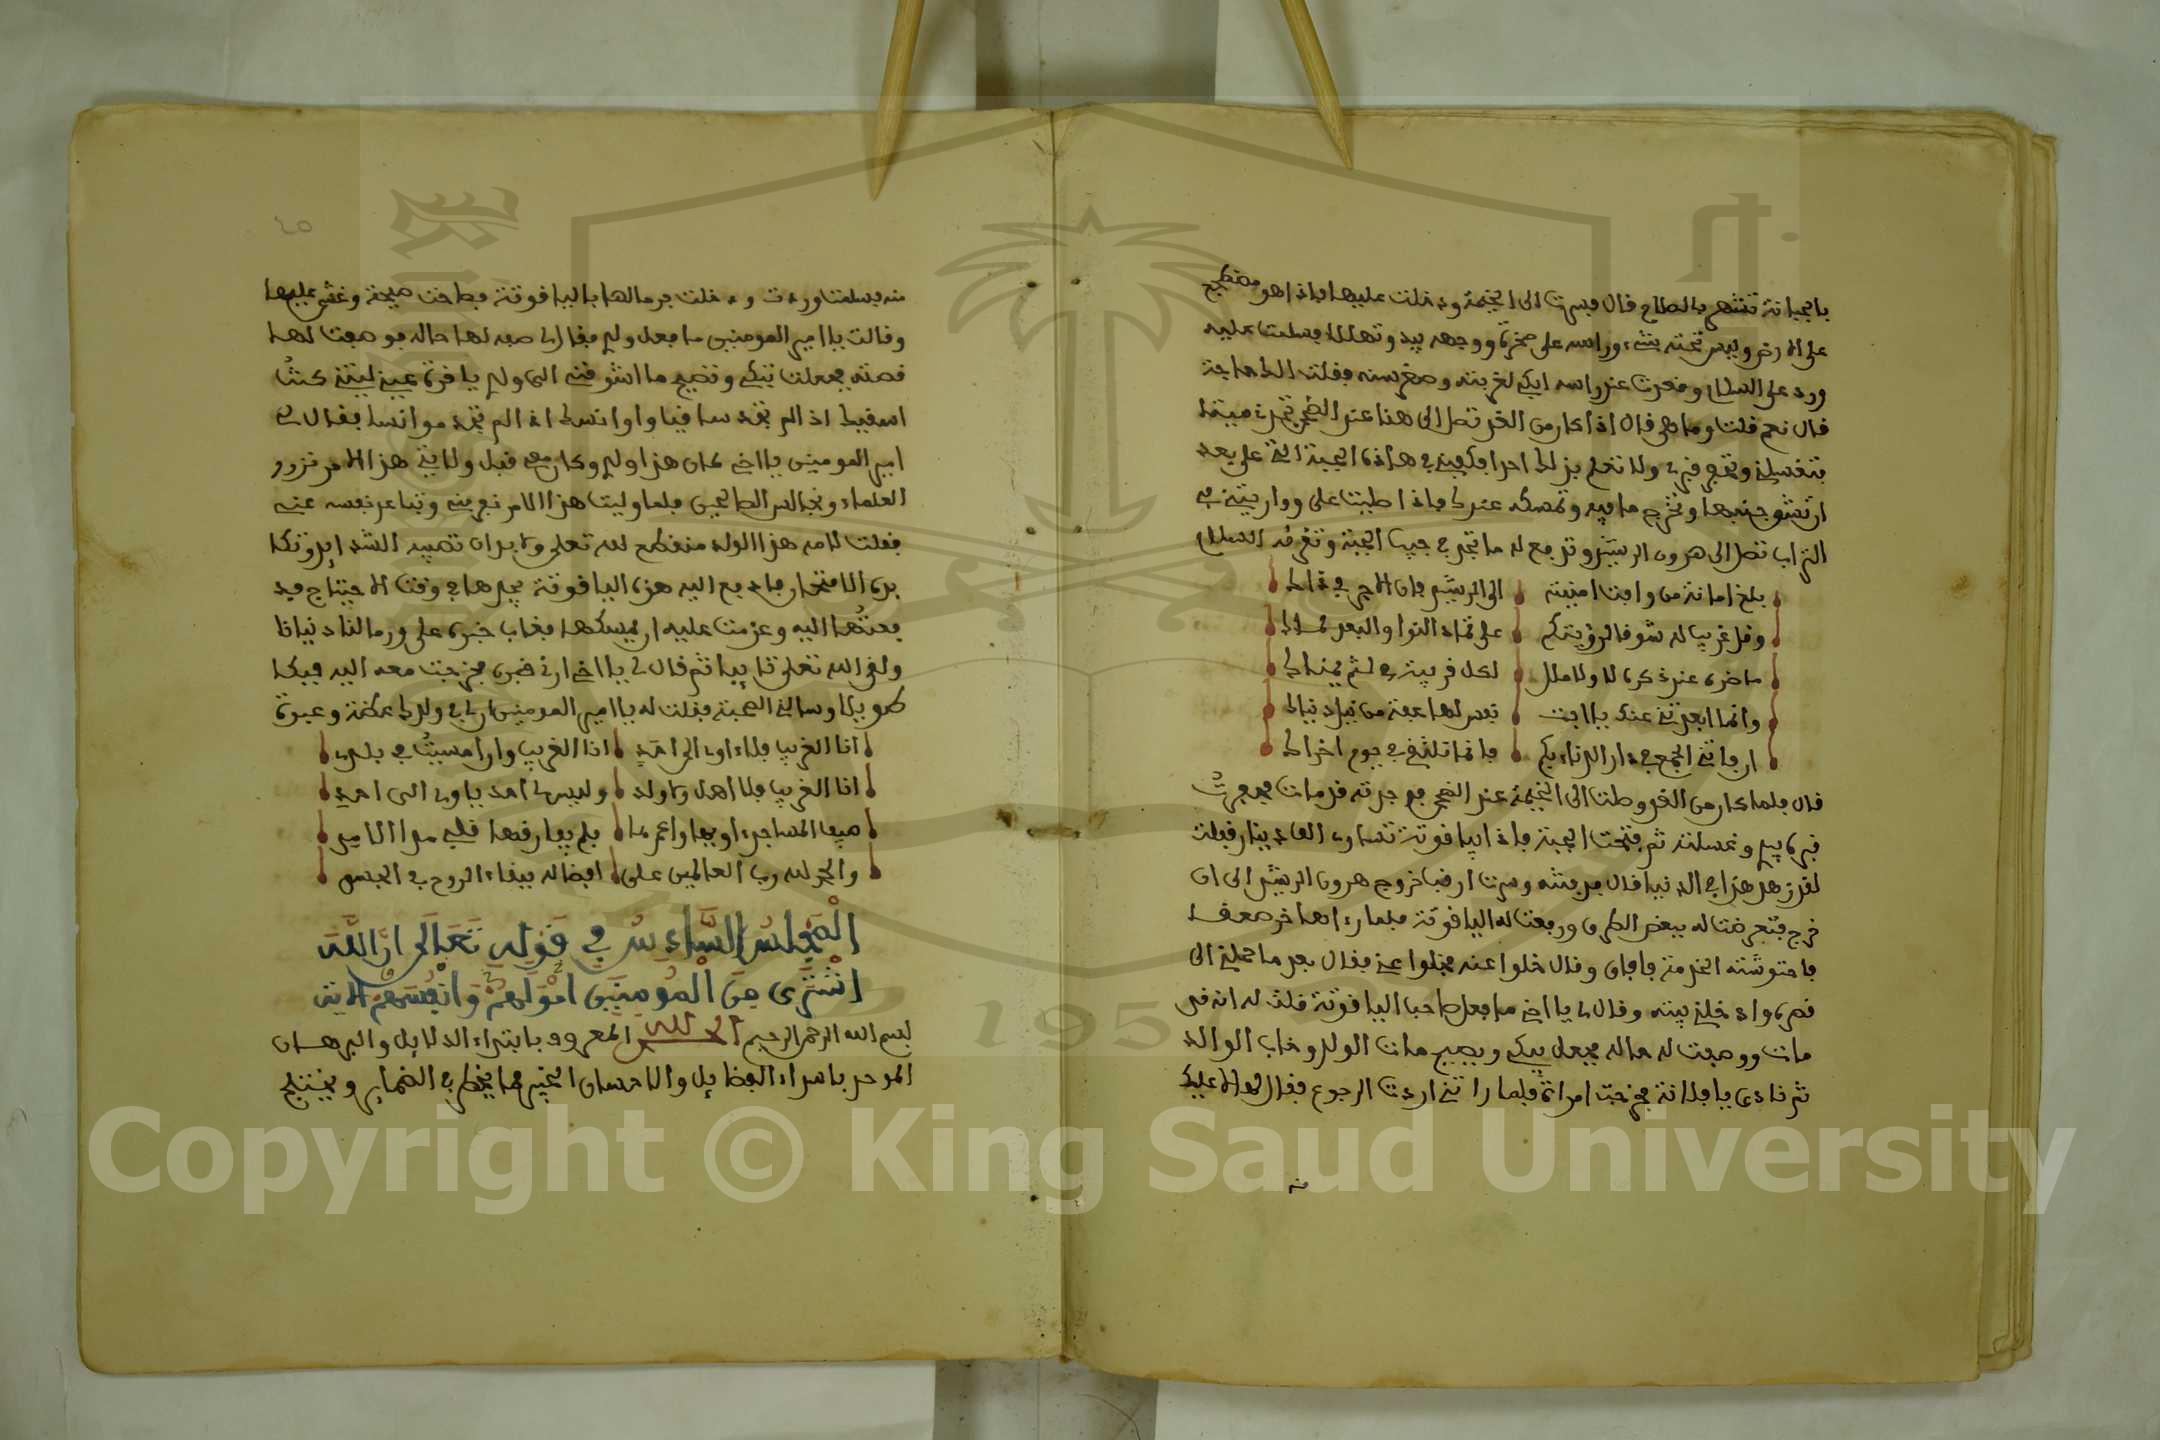 بالجبانة تشهر بالصلاح قال فسرت الى الخيمة ودخلت عليها فاذا هو مضطجع
على الارض وليس تحته شيء وراسه على صخرة ووجهه يبد وتهلل فسلمت عليه
ورد علي السلام وقعدت عند راسه ابكي لغربته وصغر سنه فقلت الك حاجة
قال نعم قلت وما هي قال اذا كان من الغد تصل الى هنا عند الضحى تجدني ميتا
فتغسلني وتحفر قبري ولا تعلم بذلك احدا وكفني في هاذه الجبة التي علي بعد
ان تفتق جنبها وتخرج ما فيه وتمسكه عندك فاذا صليت علي وواريتني في
التراب تصل الى هرون الرشيد وتدفع له ما تجد في جيب الجبة وتقرئه السلام
بلغ امانة من وافت امنيته الى الرشيد فان الاجر في ذاك
وقل غريب له شوق لرؤيتكم على تمادي النوا والبعد لباك
ما ضره عنك ذكره لا ولا ملل لكل قربته في لثم يمناك
وانما ابعدتني عنك يا ابت نفس لها عفة من نيل دنياك
ان فاتني الجمع في دار الدنا بكم فانما نلتقي في يوم اخراك
قال فلما كان من الغد وصلت الى الخيمة عند الضحى فوجدته قد مات فحفرت
قبره بيدي وغسلته ثم فتحت الجبة فاذا بياقوتة تساوي الف دينار فقلت
لقد زهد هذا في الدنيا قال فدفنته وسرت ارقب خروج هرون الرشيد الى ان
خرج فتعرضت له ببعض الطرق ودفعت له الياقوتة فلما رءاها خر صعقا
فاحتوشته الخدمة فافاق وقال خلوا عنه فخلوا عني فقال بعد ما حملني الى
قصره وادخلني بيته وقال لي يا اخي ما فعل صاحب الياقوتة قلت له انه قد
مات ووصفت له حاله فجعل يبكي ويصيح مات الولد وخاب الوالد
ثم نادى يا فلانة فخرجت امراة فلما راتني ارادت الرجوع فقال لها لا عليك
منه
منه فسلمت وردت ودخلت فرمى لها بالياقوتة فصاحت صيحة وغشي عليها
وقالت يا امير المومنين ما فعل ولدي فقال لي صف لها حاله فوصفت لها
قصته فجعلت تبكي وتصيح ما اشوقني الى ولدي يا قرة عيني ليتني كنت
اسقيك اذ لم تجد ساقيا واوانسك اذ لم تجد موانسا فقال لي
امير المومنين يا اخي كان هذا ولدي وكان معي قبل ولايتي هذا الامر نزور
العلماء ونجالس الصالحين فلما وليت هذا الامر نفر مني وتباعد نفسه عني
فقلت لامه هذا الولد منقطع لله تعلى ولا بد ان تصيبه الشدايد وتكا
بده الامتحان فادفع اليه هذه الياقوتة يجدها في وقت الاحتياج اليه
فدفعتها اليه وعزمت عليه ان يمسكها فغاب خبره علي ورد مالنا دنيانا
ولقي الله تعلى تايبا ثم قال لي يا اخي ارني قبره فخرجت معه اليه فبكا
طويلا وسالني الصحبة فقلت له يا امير المومنين ان لي في ولدك عظة وعبرة
انا الغريب فلا اوي الى احد انا الغريب وان امسيت في بلدي
انا الغريب فلا اهل ولا ولد وليس لي احد ياوي الى احد
فيها المساجد اويها واعمرها فلم يفارقها قلبي مدا الابد
والحمد لله رب العالمين على افضاله ببقاء الروح في الجسد
المجلس السادس في قوله تعالى ان الله
اشترى من المومنين اموالهم وانفسهم الاية
بسم الله الرحمن الرحيم الحمد لله المعروف بابتداء الدلايل والبرهان
الموحد باسداء الفضايل والاحسان الخبير بما يخطر في الضماير ويختلج
Copyright © King Saud University